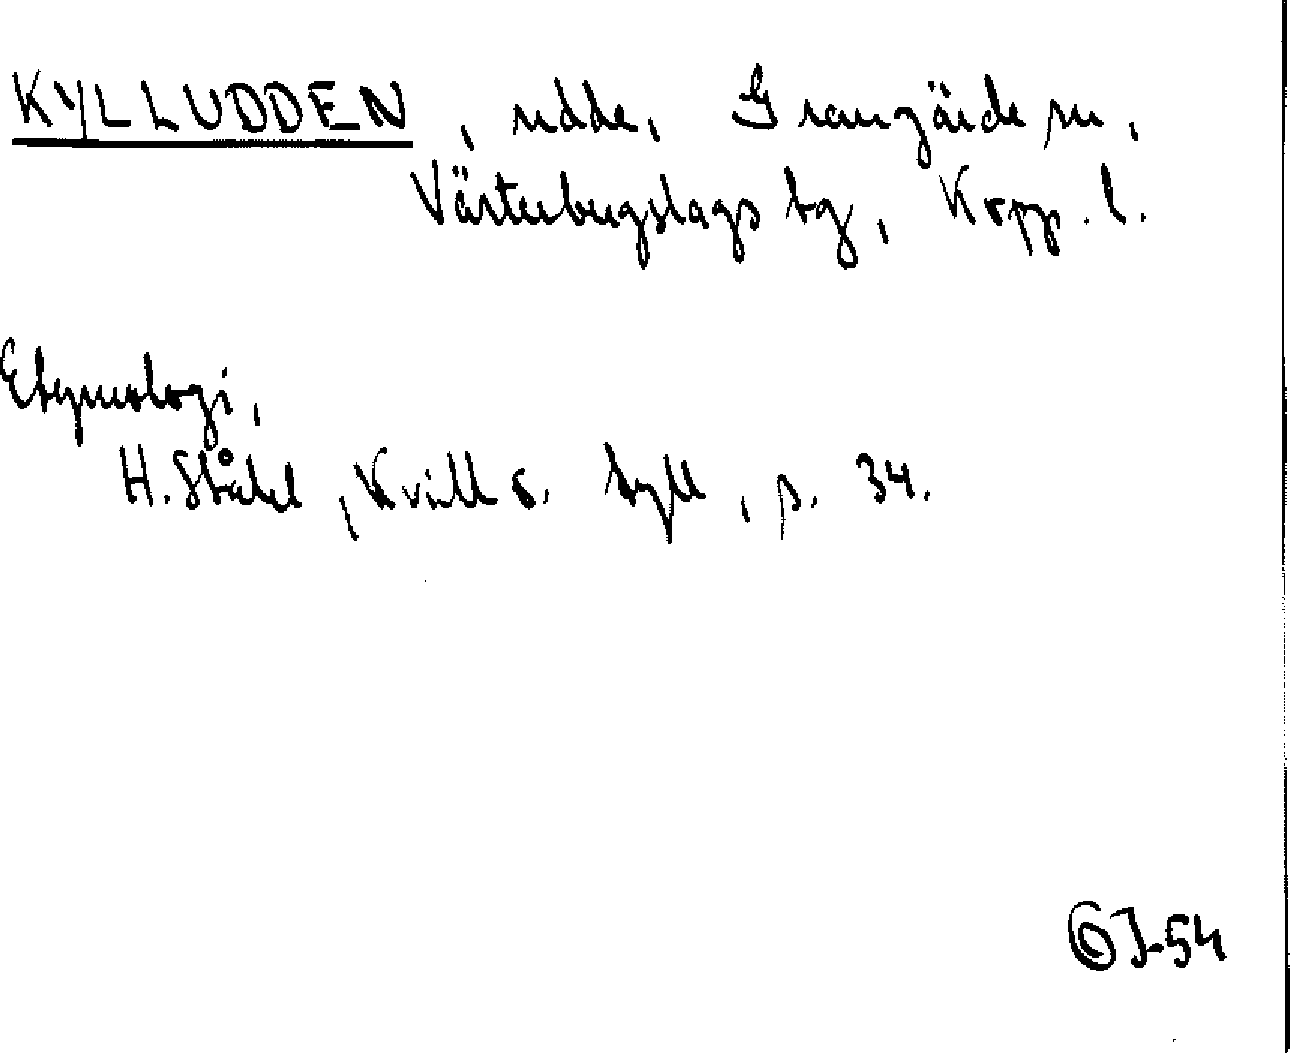 KYLLUDDEN, udde, Grangärde sn,
Västerbergslags tg, Kopp. l.
Etymologi,
H. Ståhl, Kvill o. tyll, s. 34.
ÖJ-54